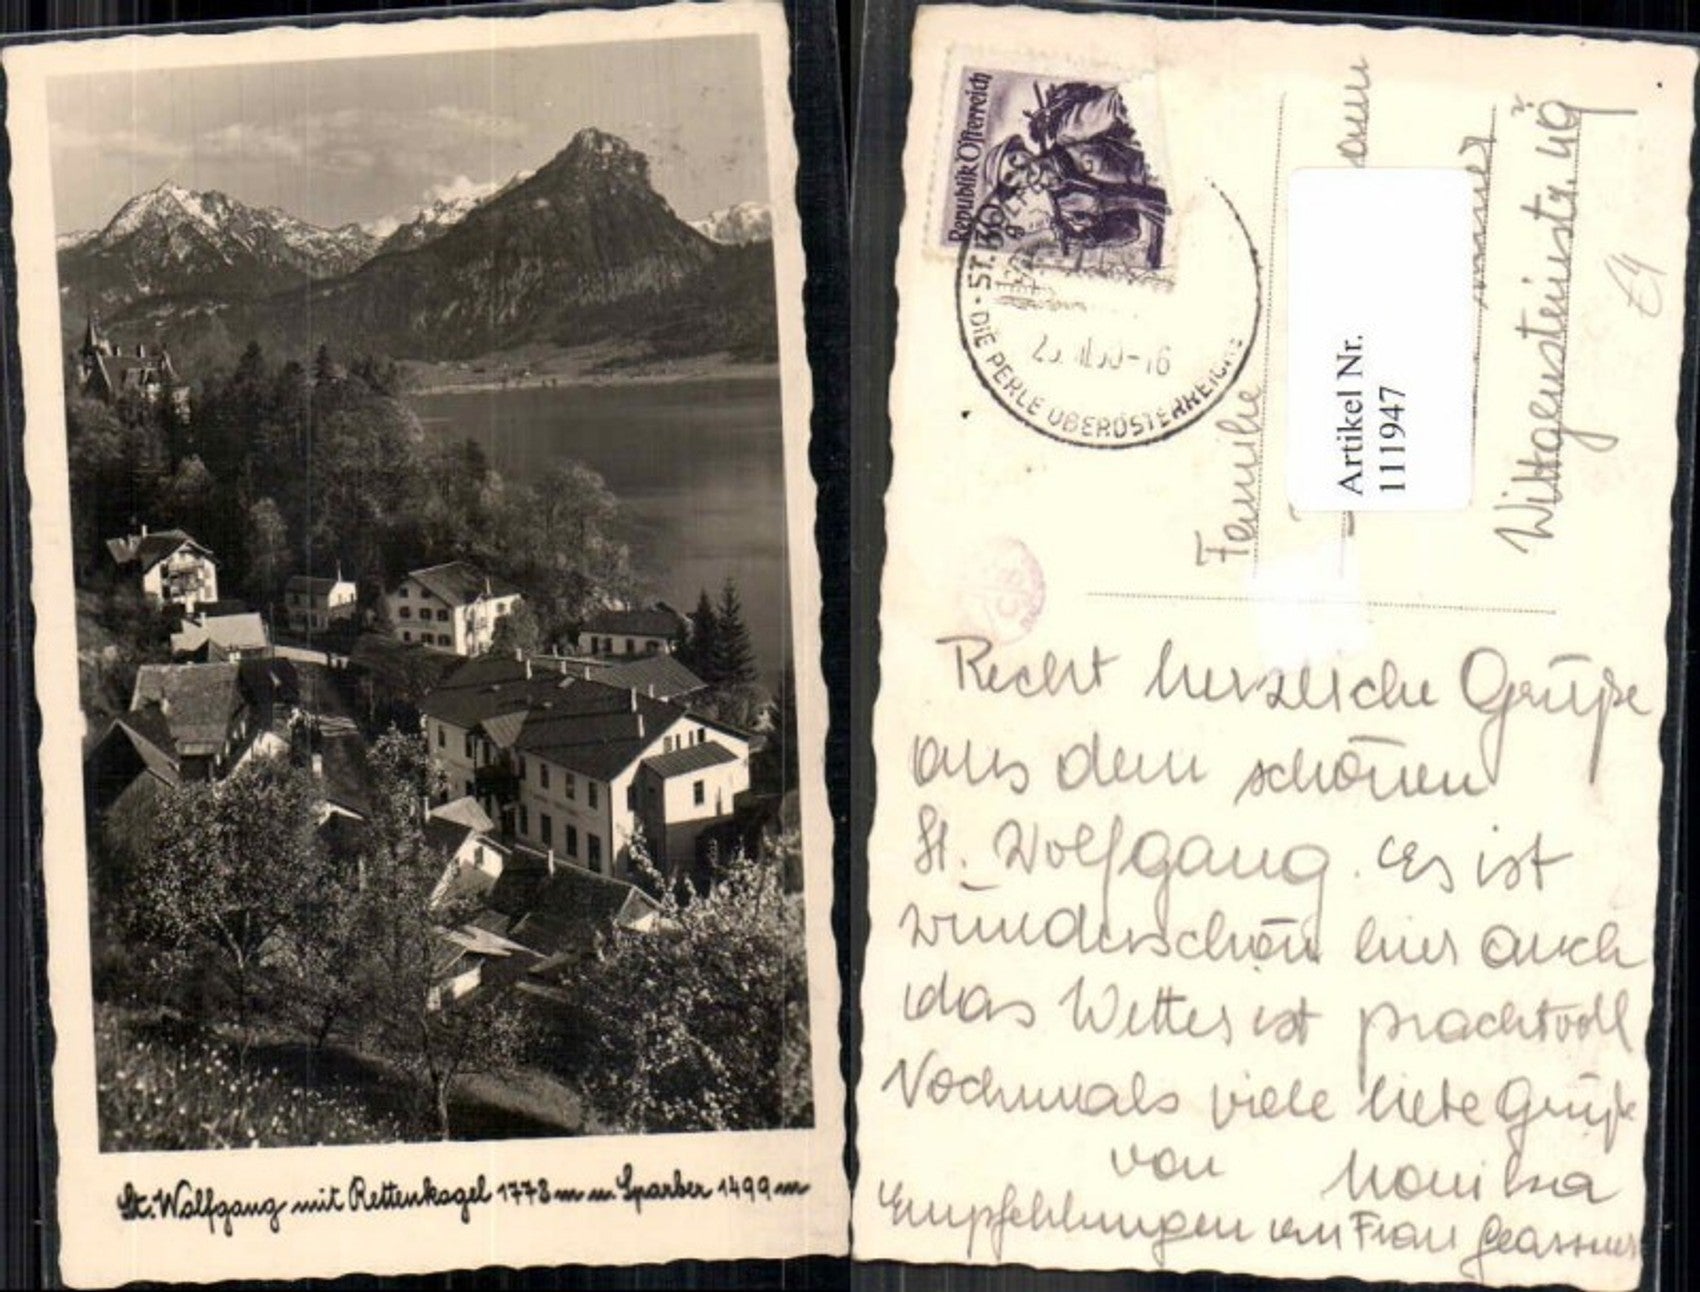 St. Wolfgang mit Rettenkogel 1773 m u. Sparber 1499 m
Republik Österreich
30
ST.
DIE PERLE OBERÖSTERREICHS
50-16
Familie
Artikel Nr.
1111947
Wittgensteinstr. 49
Recht herzliche Grüße
aus dem schönen
St. Wolfgang. Es ist
wunderschön hier auch
das Wetter ist prachtvoll
Nochmals viele liebe Grüße
von Monika
Empfehlungen von Frau